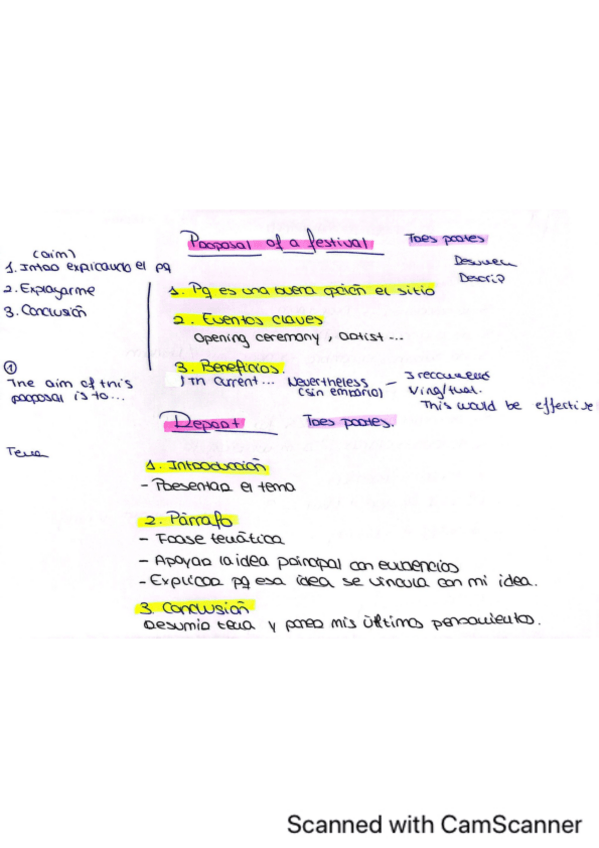 Proposal of a festival
Tres partes
(aim)
1. Intro explicando el pq
2. Explayarme
3. Conclusión
Resumen
Descrip
1. Pq es una buena opción el sitio
2. Eventos claves
Opening ceremony, artist ...
3. Beneficios.
In current ... Nevertheless
(sin embargo)
3 recourses
Ving/tual.
This would be effective
①
The aim of this
proposal is to ...
Report
Tres partes.
Tema
1. Introducción
- Presentar el tema
2. Párrafo
- Frase temática
- Apoyar la idea principal con evidencias
- Explicar pq esa idea se vincula con mi idea.
3. Conclusión
Resumir tema y poner mis últimos pensamientos.
Scanned with CamScanner